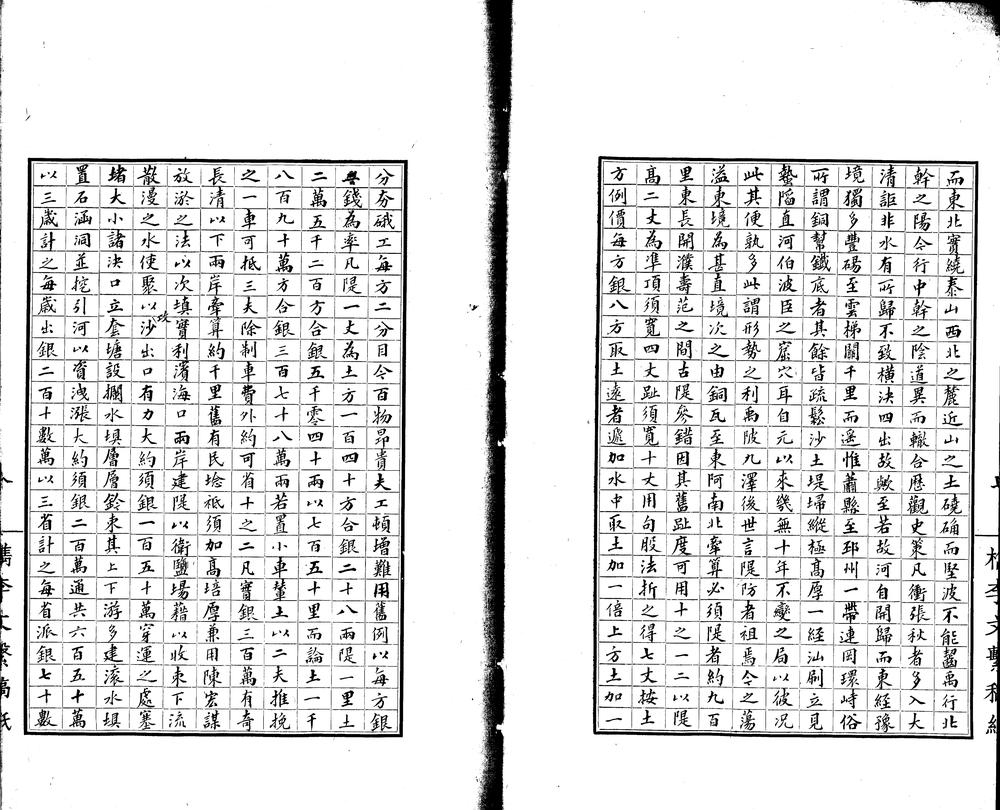 而東北實繞泰山西北之麓近山之土磽确而堅波不能齧禹行北
幹之陽今行中幹之陰道異而轍合歷觀史策凡衝張秋者多入大
清詎非水有所歸不致橫決四出故歟至若故河自開歸而東經豫
境獨多豐碭至雲梯關千里而遥惟蕭縣至邳州一帶連岡環峙俗
所謂銅幫鐵底者其餘皆疏鬆沙土堤埽縱極高厚一經汕刷立見
蟄陷直河伯波臣之窟穴耳自元以來幾無十年不變之局以彼況
此其便孰多此謂形勢之利禹陂九澤後世言隄防者祖焉今之蕩
溢東境為甚直境次之由銅瓦至東阿南北牽算必須隄者約九百
里東長開濮壽范之間古隄參錯因其舊趾度可用十之一二以隄
高二丈為準頂須寬四丈趾須寬十丈用句股法折之得七丈按土
方例價每方銀八方取土遠者遞加水中取土加一倍上方土加一
分夯硪工每方二分目今百物昂貴夫工頓增難用舊例以每方銀
錢為率凡隄一丈為土方一百四十方合銀二十八兩隄一里土
二萬五千二百方合銀五千零四十兩以七百五十里而論土一千
八百九十萬方合銀三百七十八萬兩若置小車輦土以二夫推挽
之一車可抵三夫除制車費外約可省十之二凡實銀三百萬有奇
長清以下兩岸牽算約千里舊有民埝祗須加高培厚兼用陳宏謀
放淤之法以次填實利濱海口兩岸建隄以衛鹽場藉以收束下流
散漫之水使聚以攻沙出口有力大約須銀一百五十萬穿運之處塞
堵大小諸決口立奎塘設攔水埧層層鈐束其上下游多建滾水埧
置石涵洞並挖引河以資洩漲大約須銀二百萬通共六百五十萬
以三歲計之每歲出銀二百十數萬以三省計之每省派銀七十數